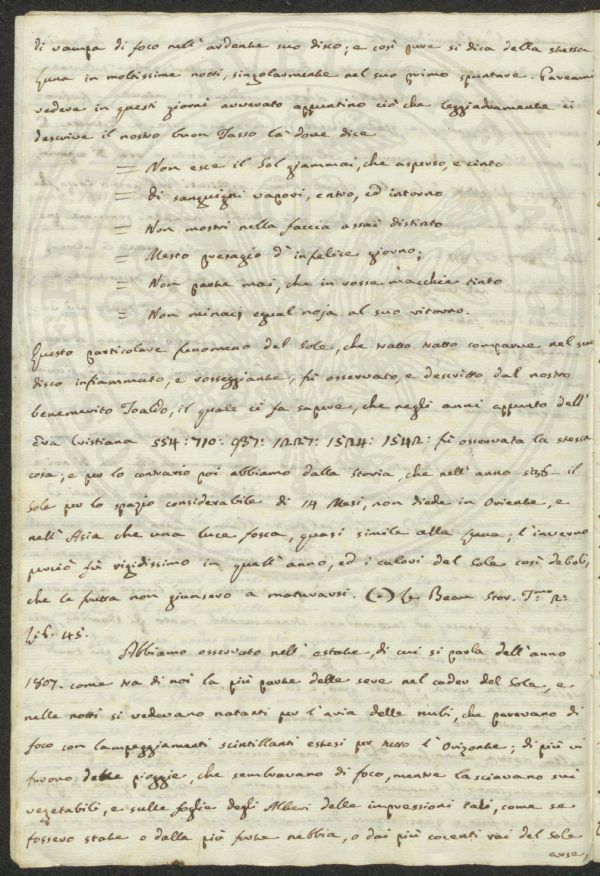 di vampa di foco nell' ardente suo disco; e così pure si dica della stessa
Luna in moltissime notti, singolarmente nel suo primo spuntare. Pareami
vedere in questi giorni avverato appuntino ciò che leggiadramente ci
descrive il nostro buon Tasso là dove dice
= Non esce il Sol giammai, che asperso, e cinto
= di sanguigni vapori, entro, ed intorno
= Non mostri nella faccia assai distinto
= Mesto presagio d' infelice giorno;
= Non parte mai, che in rosse macchie tinto
= Non minacj egual noja al suo ritorno.
Questo particolare fenomeno del Sole, che tratto tratto comparve nel suo
disco infiammato, e rosseggiante, fù osservato, e descritto dal nostro
benemerito Toaldo, il quale ci fa sapere, che negli anni appunto dell'
Era Cristiana 554: 710: 937: 1227: 1524: 1542: fù osservata la stessa
cosa; e per lo contrario poi abbiamo dalla Storia, che nell' anno 536 - il
Sole per lo spazio considerabile di 14 Mesi, non diede in Oriente, e
nell' Asia che una luce fosca, quasi simile alla Luna; l' inverno
perciò fù rigidissimo in quell' anno, ed i calori del Sole così deboli,
che le frutta non giunsero a maturarsi. (•) Le Beau Stor. Tmo 2:
Lib. 45.
Abbiamo osservato nell' estate, di cui si parla dell' anno
1807. come tra di noi la più parte delle sere nel cader del Sole, e
nelle notti si vedevano natanti per l' aria delle nubi, che parevano di
foco con lampeggiamenti scintillanti estesi per tutto l' Orizonte; di più vi
furono delle pioggie, che sembravano di foco, mentre lasciavano sui
vegetabili, e sulle foglie degli Alberi delle impressioni tali, come se
fossero state o dalla più forte nebbia, o dai più cocenti rai del Sole